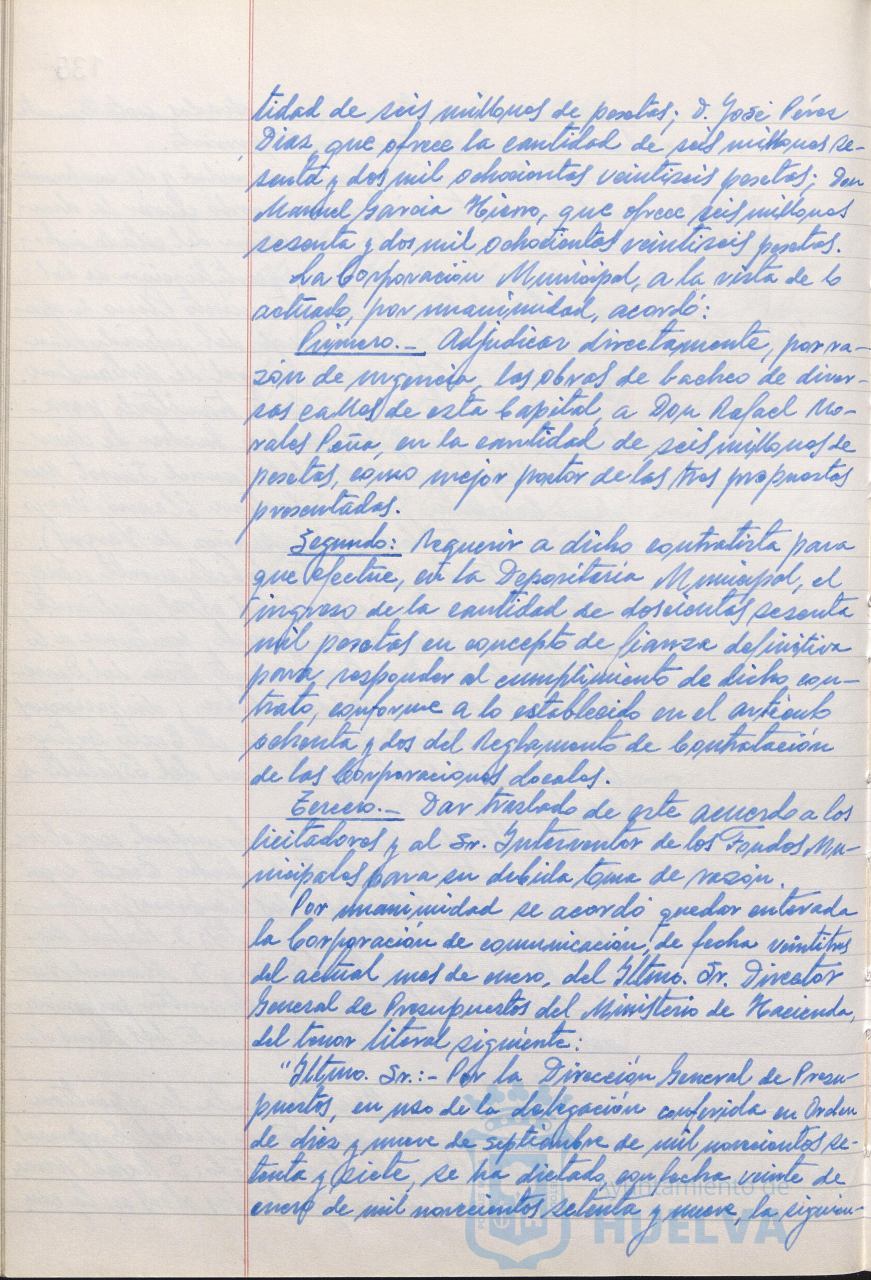 tidad de seis millones de pesetas; D. José Pérez
Diaz, que ofrece la cantidad de seis millones se-
senta y dos mil ochocientas veintiseis pesetas; Don
Manuel Garcia Hierro, que ofrece seis millones
sesenta y dos mil ochocientas veintiseis pesetas.
La Corporación Municipal, a la vista de lo
actuado, por unanimidad, acordó:
Primero.- Adjudicar directamente, por ra-
zón de urgencia, las obras de bacheo de diver-
sas calles de esta Capital, a Don Rafael Mo-
rales Peña, en la cantidad de seis millones de
pesetas, como mejor postor de las tres propuestas
presentadas.
Segundo: Requerir a dicho contratista para
que efectue, en la Depositaria Municipal, el
ingreso de la cantidad de doscientas sesenta
mil pesetas en concepto de fianza definitiva
para responder al cumplimiento de dicho con-
trato, conforme a lo establecido en el artículo
ochenta y dos del Reglamento de Contratación
de las Corporaciones Locales.
Tercero.- Dar traslado de este acuerdo a los
licitadores y al Sr. Interventor de los Fondos Mu-
nicipales para su debida toma de razón.
Por unanimidad se acordó quedar enterada
la Corporación de comunicación, de fecha veintitres
del actual mes de enero, del Iltmo. Sr. Director
General de Presupuestos del Ministerio de Hacienda,
del tenor literal siguiente:
"Iltmo. Sr.:- Por la Dirección General de Presu-
puestos, en uso de la delegación conferida en Orden
de diez y nueve de septiembre de mil novecientos se-
tenta y siete, se ha dictado, con fecha veinte de
enero de mil novecientos setenta y nueve, la siguien-
Ayuntamiento de
HUELVA